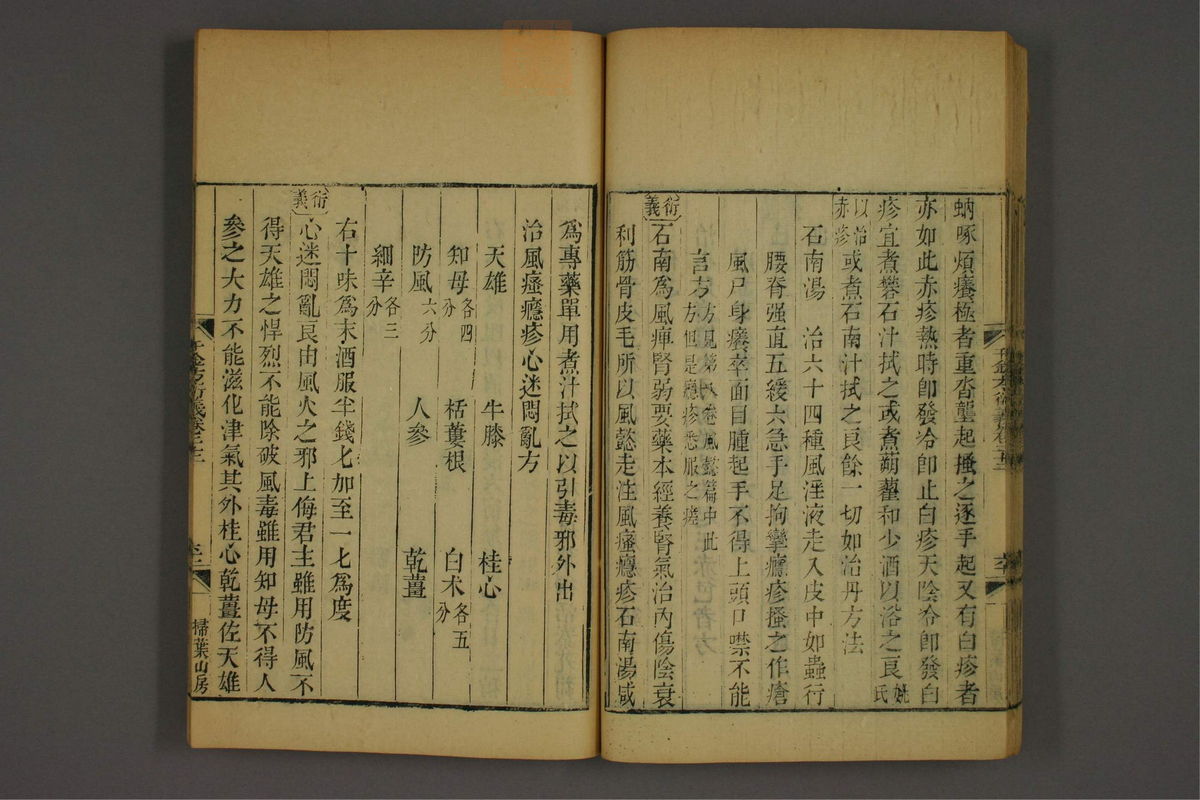 蚋啄煩癢極者重沓壟起搔之逐手起又有白疹者
亦如此赤疹熱時卽發冷卽止白疹天陰冷卽發白
疹宜煮礬石汁拭之或煮蒴藋和少酒以浴之良姚氏
以治赤疹或煮石南汁拭之良餘一切如治丹方法
石南湯 治六十四種風淫液走入皮中如蟲行
腰脊强直五緩六急手足拘攣癮疹搔之作瘡
風尸身癢卒面目腫起手不得上頭口噤不能
言方方見第八卷風懿篇中此方但是癮疹悉服之瘥
衍義
石南爲風痺腎弱要藥本經養腎氣治內傷陰衰
利筋骨皮毛所以風懿走注風瘙癮疹石南湯咸
爲專藥單用煮汁拭之以引毒邪外出
治風瘙癮疹心迷悶亂方
天雄 牛膝 桂心
知母各四分 栝蔞根 白朮各五分
防風六分 人參 乾薑
細辛各三分
右十味爲末酒服半錢匕加至一匕爲度
衍義
心迷悶亂良由風火之邪上侮君主雖用防風不
得天雄之悍烈不能除破風毒雖用知母不得人
參之大力不能滋化津氣其外桂心乾薑佐天雄
千金方衍義卷二十二
掃葉山房